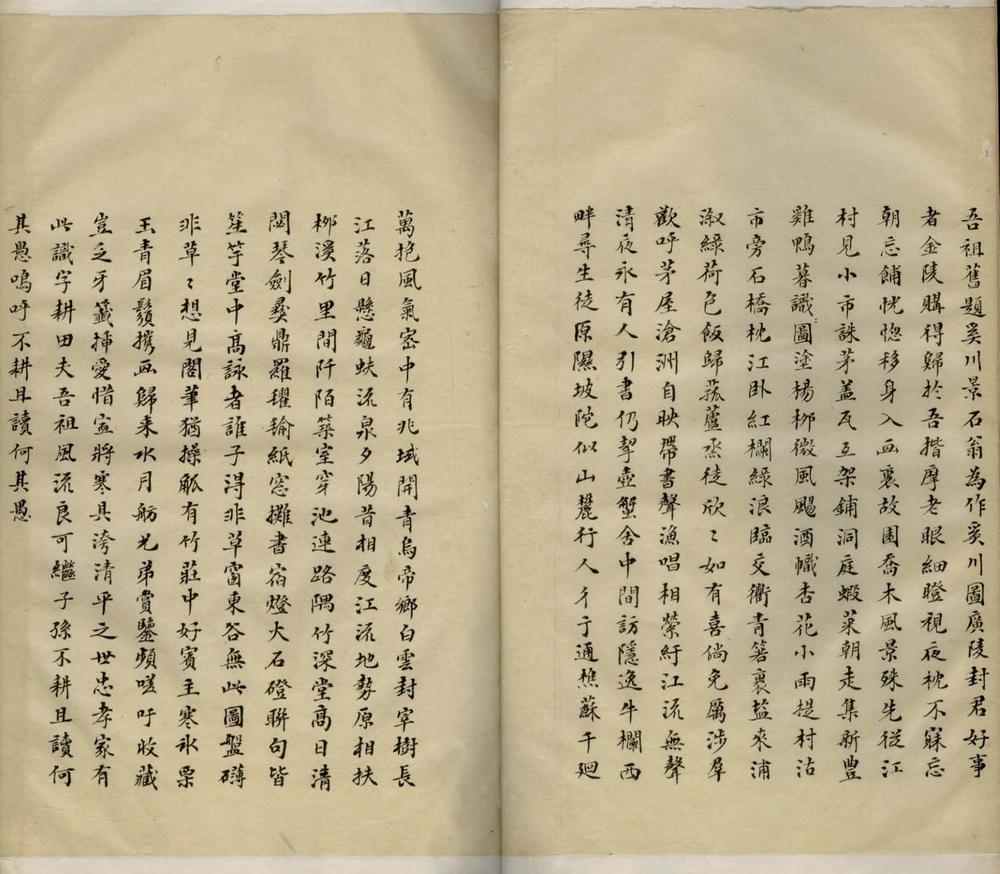 吾祖舊題奚川景石翁為作奚川圖廣陵封君好事
者金陵購得歸於吾揩摩老眼細瞪視夜枕不寐忘
朝忘餔恍惚移身入畫裏故園喬木風景殊先從江
村見小市誅茅蓋瓦互架鋪洞庭蝦菜朝走集新豐
雞鴨暮識圖塗楊栁微風颺酒幟杏花小雨提村沽
市旁石橋枕江卧紅欄綠浪臨交衢青箬裹鹽來浦
漵綠荷包飯歸菰蘆烝徒欣〻如有喜倘免厲涉羣
歡呼茅屋滄洲自映帶書聲漁唱相縈紆江流無聲
清夜永有人引書仍挈壺蟹舍中間訪隱逸牛欄西
畔尋生徒原隰坡陀似山麓行人彳亍通樵蘇千廻
萬抱風氣密中有兆域開青烏帝鄉白雲封宰樹長
江落日懸龜趺流泉夕陽昔相度江流地勢原相扶
栁溪竹里間阡陌築室穿池連路隅竹深堂高日清
閟琴劍彝鼎羅璀瑜紙窓攤書宿燈火石磴聯句皆
笙竽堂中高詠者誰子得非草窗東谷無此圖盤礴
非草〻想見閣筆猶操觚有竹莊中好賓主寒氷栗
玉青眉鬚攜畫歸来水月舫兄弟賞鑒頻嗟吁收藏
豈乏牙籤揷愛惜寍將寒具洿清平之世忠孝家有
此識字耕田夫吾祖風流良可繼子孫不耕且讀何
其愚嗚呼不耕且讀何其愚